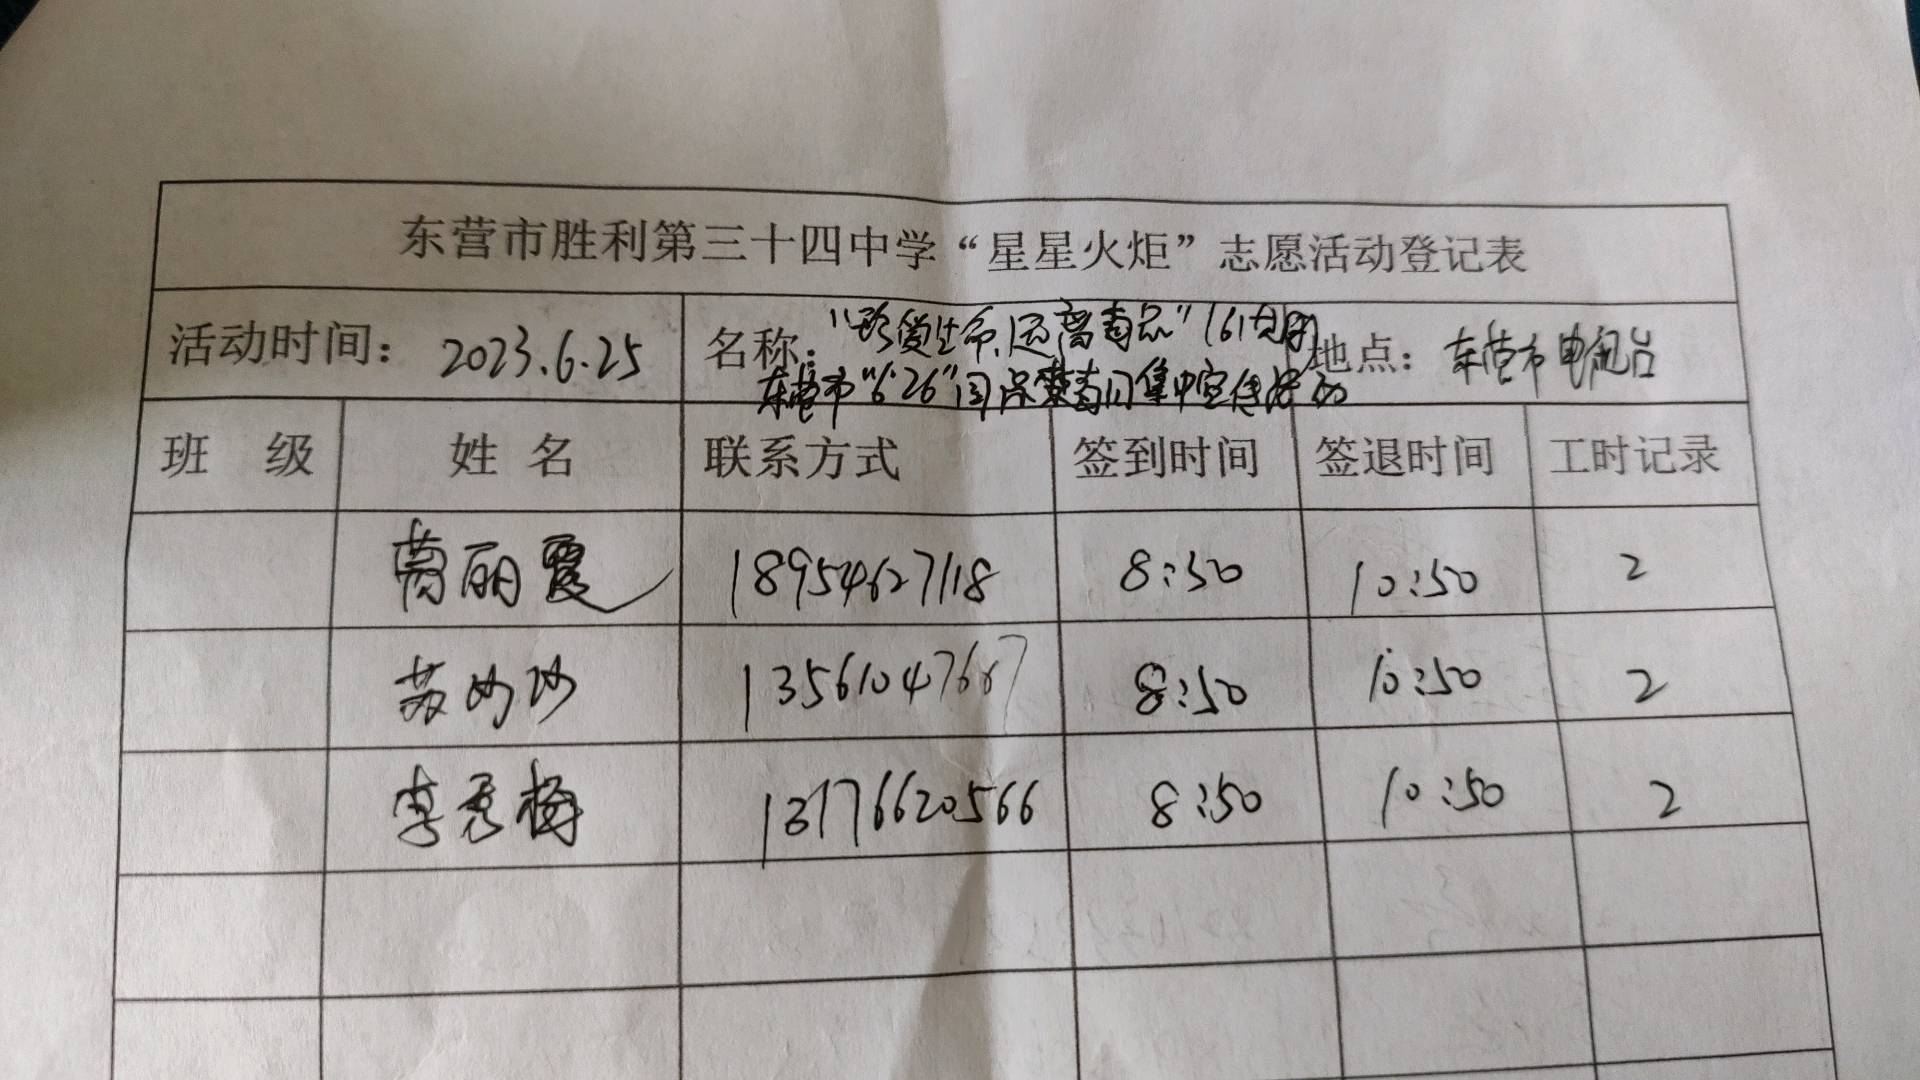 东营市胜利第三十四中学“星星火炬”志愿活动登记表
活动时间：2023.6.25 名称：“珍爱生命,远离毒品” 地点：东营市电视台
东营市“6·26”国际禁毒日集中宣传活动
班 级 姓 名 联系方式 签到时间 签退时间 工时记录
丽霞 18954627118 8:50 10:50 2
苏 13561047667 8:50 10:50 2
李秀梅 13176620566 8:50 10:50 2